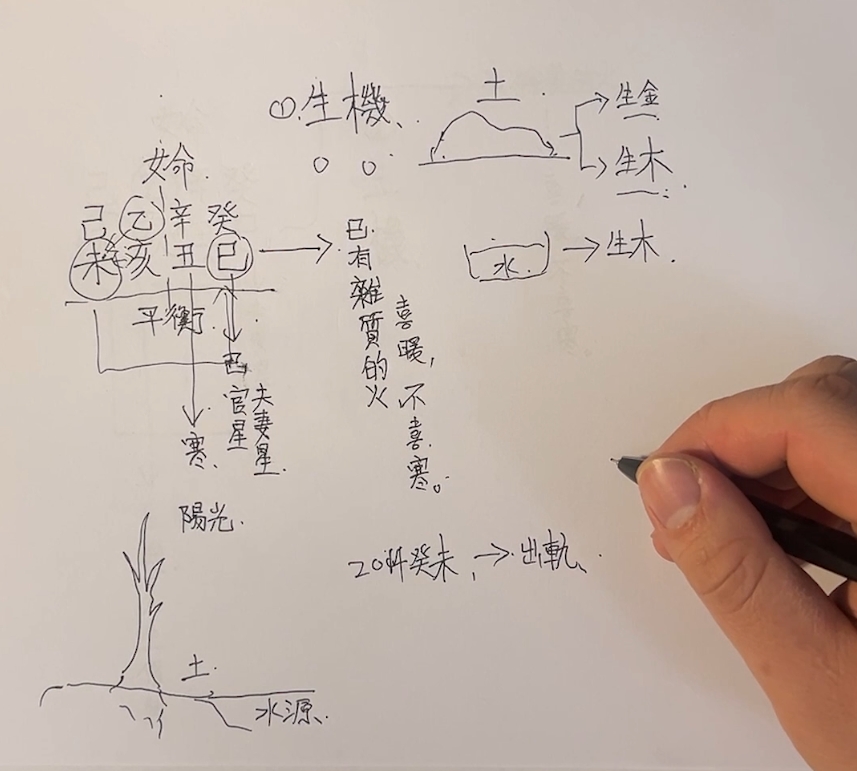 ①.生機、
土
生金
生木
女命.
己乙辛癸
未亥丑巳
平衡.
寒.
官星
夫妻星.
巳.有雜質的火
喜暖,不喜寒。
水.
生木.
陽光.
土.
水源、
癸未、→出軌、